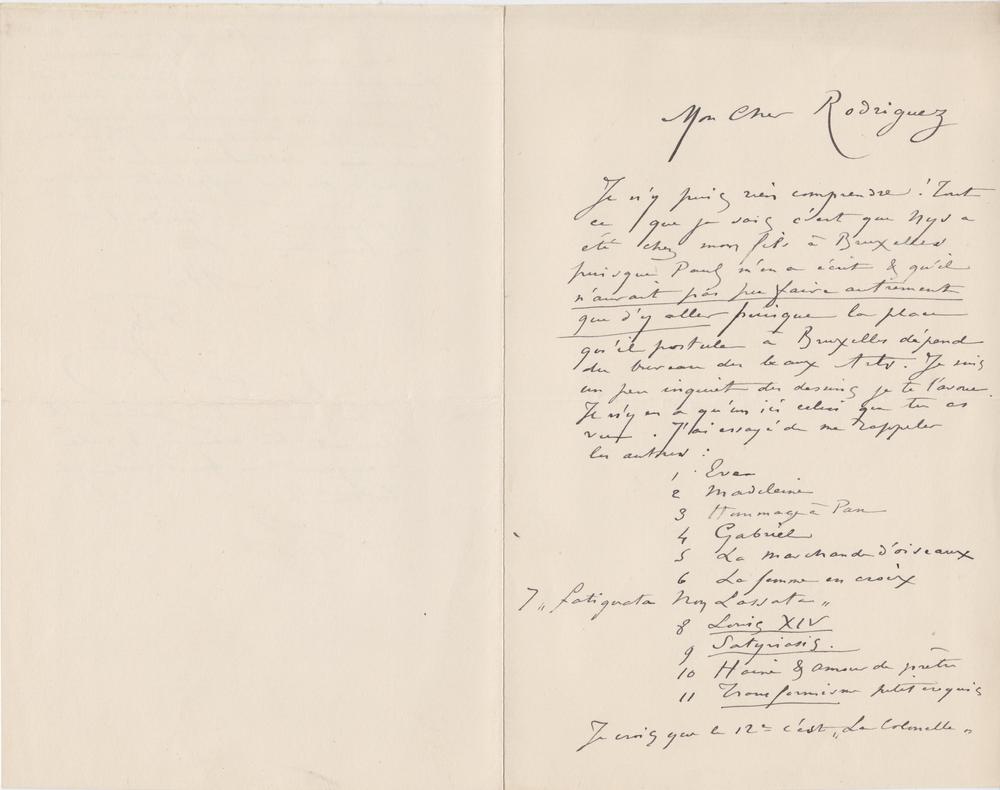 Mon Cher Rodriguez
Je n'y puis rien comprendre ! Tout
ce que je sais c'est que Nys a
été chez mon fils à Bruxelles
puisque Paul m'en a écrit & qu'il
n'aurait pas pu faire autrement
que d'y aller puisque la place
qu'il postule à Bruxelles dépend
du bureau des beaux Arts. Je suis
un peu inquiet des dessins je te l'avoue.
Je n'y en a qu'un ici celui que tu as
vu . J'ai essayé de me rappeler
les autres :
1 Eva
2 Madeleine
3 Hommage à Pan
4 Gabriel
5 La marchande d'oiseaux
6 La femme en croix
7 „ fatigata Non Lassata „
8 Louis XIV
9 Satyriasis.
10 Haine & amour de prêtre
11 Transformisme petit croquis
Je crois que le 12e c'est „La Colonelle „